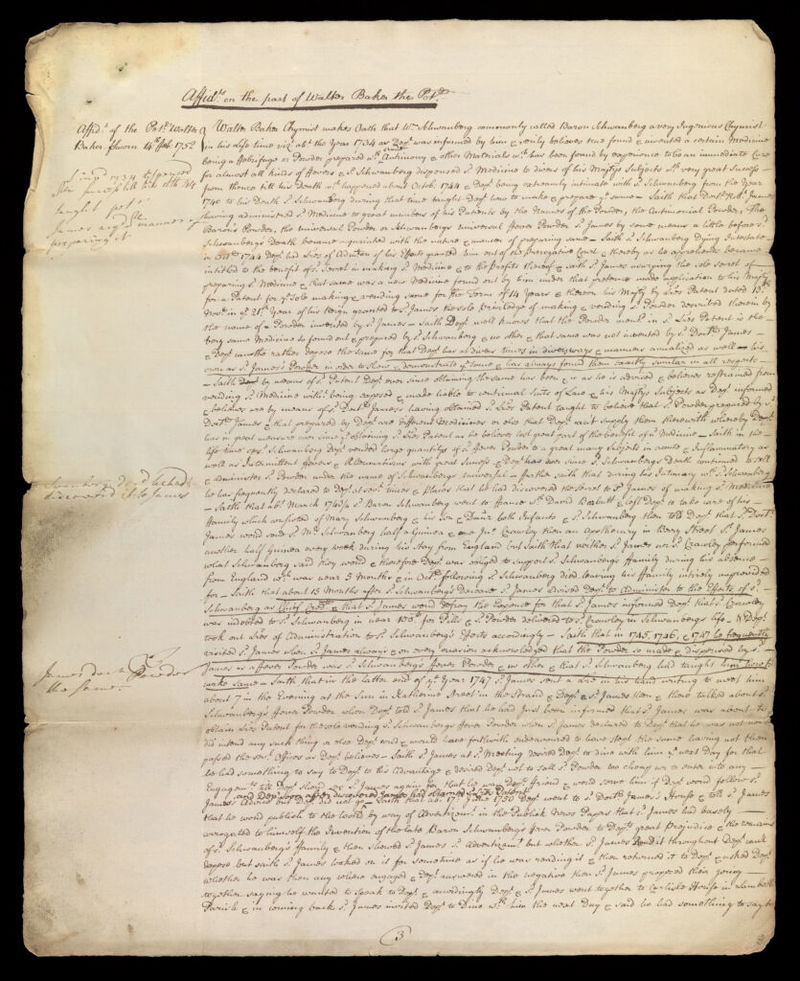 Affid.ts on the part of Walter Baker the Pet.r
Affid.t of the Pet.r Walter
Baker sworn 14.th Feb. 1752
Walter Baker Chymist makes Oath that W.m Schwanberg commonly called Baron Schwanberg a very Ingenious Chymist
in his life time viz.t ab.t the Year 1734 as Dep.t was informed by him & verily believes true found & invented a certain Medicine
being a ffebrifuge or Powder prepared w.th Antimony & other Materials w.ch has been found by experience to be an immediate Cure
for almost all kinds of ffevers & s.d Schwanberg dispensed s.d Medicine to divers of his Majtys Subjects w.th very great Success
from thence till his Death w.ch happened about Octob.r 1744 & Dep.t being extremly intimate with s.d Schwanberg from the Year
1740 to his Death s.d Schwanberg during that time taught Dep.t how to make & prepare y.e same – Saith that Deft R.t James
having administred s.d Medicine to great numbers of his Patients by the Names of the Powder, the Antimonial Powder, The
Baron's Powder, the Universal Powder or Schwanbergs Universal ffever Powder s.d James by some means a little before s.d
Schwanbergs Death became acquainted with the nature & manner of preparing same – Saith s.d Schwanberg Dying Intestate
in Oct.r 1744 Dep.t had L'res of Adm'on of his Effects granted him out of the Prerogative Court & thereby as he apprehends became
intitled to the benefit of s.d Secret in making s.d Medicine & to the Profits thereof & saith s.d James usurping the sole secret of
preparing s.d Medicine & that same was a new Medicine found out by him under that pretence made application to his Majty
for a Patent for y.e sole making & vending same for the Term of 14 Years & thereon his Majty by L'res Patent dated 13.th
Nov.r in y.e 21.st Year of his Reign granted to s.d James the sole priviledge of making & vending s.d Powder described therein by
the name of a Powder invented by s.d James – Saith Dep.t well knows that the Powder ment.d in s.d L'res Patent is the
very same Medicine so found out & prepared by s.d Schwanberg & no other & that same was not invented by s.d Deft James –
& Dep.t can the rather depose the same for that Dep.t has at divers times in divers ways & manner annalized as well his
own as s.d James's Powder in order to shew & demonstrate y.e same & has always found them exactly similar in all respects –
– Saith by means of s.d Patent Dep.t ever since obtaining the same has been & is as he is advised & believes restrained from
vending s.d Medicine with.t being exposed & made liable to continual suits of Law & his Majtys Subjects as Dep.t informed
& believes are by means of s.d Deft James's having obtained s.d L'res Patent taught to believe that s.d Powder prepared by s.d
Deft James & that prepared by Dep.t are different Medicines or else that Dep.t can't supply them therewith whereby Dep.t
has in great measure ever since y.e obtaining s.d L'res Patent as he believes lost great part of the benefit of s.d Medicine – Saith in the
life time of s.d Schwanberg Dep.t vended large quantitys of s.d ffever Powder to a great many Subjects in acute & Inflammatory as
well as Intermittent ffevers & Ulcerations with great success & Dep.t has ever since s.d Schwanberg's Death continued to sell
& administer s.d Powder under the name of Schwanberg's universal – ffurther saith that during his Intimacy w.th s.d Schwanberg
he has frequently declared to Dep.t at sev.l times & places that he had discovered the secret to s.d James of making s.d Medicine
– Saith that ab.t March 1743/4 s.d Baron Schwanberg went to ffrance w.th David & left Dep.t to take care of his
ffamily which consisted of Mary Schwanberg & his Son & Dau'r both Infants & s.d Schwanberg then told Dep.t that s.d Deft
James would send s.d M.rs Schwanberg half a Guinea & one Jn.o Crawley then an Apothecary in Bury Street S.t James
another half Guinea every week during his stay from England but saith that neither s.d James nor s.d Crawley performed
what Schwanberg said they would & therefore Dep.t was obliged to support s.d Schwanberg's ffamily during his absence –
from England w.ch was near 3 Months & in Oct.r following s.d Schwanberg died leaving his ffamily intirely unprovided
for – Saith that about 13 Months after s.d Schwanberg's Decease s.d James advised Dep.t to Administer to the Effects of s.d
Schwanberg as Chief Cred.r & that s.d James would defray the Expence for that s.d James informed Dep.t that s.d Crawley
was indebted to s.d Schwanberg in near 100£ for Pills & s.d Powder delivered to s.d Crawley in Schwanbergs life – & Dep.t
took out L'res of Administration to s.d Schwanberg's Effects accordingly – Saith that in 1745, 1746, & 1747 he frequently
visited s.d James when s.d James always & on every occasion acknowledged that the Powder so made & dispensed by s.d
James as a ffever Powder was s.d Schwanberg's ffever Powder & no other & that s.d Schwanberg had taught him how to
make same – Saith that in the latter end of y.e Year 1747 s.d James sent a in his hand writing to meet him
about 7 in the Evening at the Sun in Katherine Street in the Strand & Dep.t & s.d James then & there talked about s.d
Schwanberg's ffever Powder when Dep.t told s.d James that he had just been informed that s.d James was about to
obtain L'res Patent for the sole vending s.d Schwanbergs ffever Powder when s.d James declared to Dep.t that he was not nor
did intend any such thing or else Dep.t could & would have forthwith endeavoured to have stopt the same having not then
passed the sev.l Offices as Dep.t believes – Saith s.d James at s.d Meeting desired Dep.t to dine with him y.e next Day for that
he had something to say to Dep.t to his Advantage & desired Dep.t not to sell s.d Powder too cheap or to enter into any –
Engagem.ts till Dep.t should see s.d James again for that he was Dep.ts ffriend & would serve him if Dep.t would follow s.d
and Dep.t soon after discovered James had obtained s.d L'res Patent
James's Advice but Dep.t did not go – Saith that ab.t 17.th June 1750 Dep.t went to s.d Deft James's House & told s.d James
that he would publish to the World by way of Advertizem.t in the Publick News Papers that s.d James had basely –
arrogated to himself the Invention of the late Baron Schwanberg's ffever Powder to Dep.ts great Prejudice & the remains
of s.d Schwanberg's ffamily & then shewed s.d James s.d Advertizem.t but whether s.d James Read it throughout Dep.t can't
depose but saith s.d James looked on it for sometime as if he was reading it & then returned it to Dep.t & asked Dep.t
whether he was then any where engaged & Dep.t answered in the negative then s.d James proposed their going –
together saying he wanted to speak to Dep.t & accordingly Dep.t & s.d James went together to Carlisle House in Lambeth
Parish & in coming back s.d James invited Dep.t to Dine w.th him the next Day & said he had something to say to
3